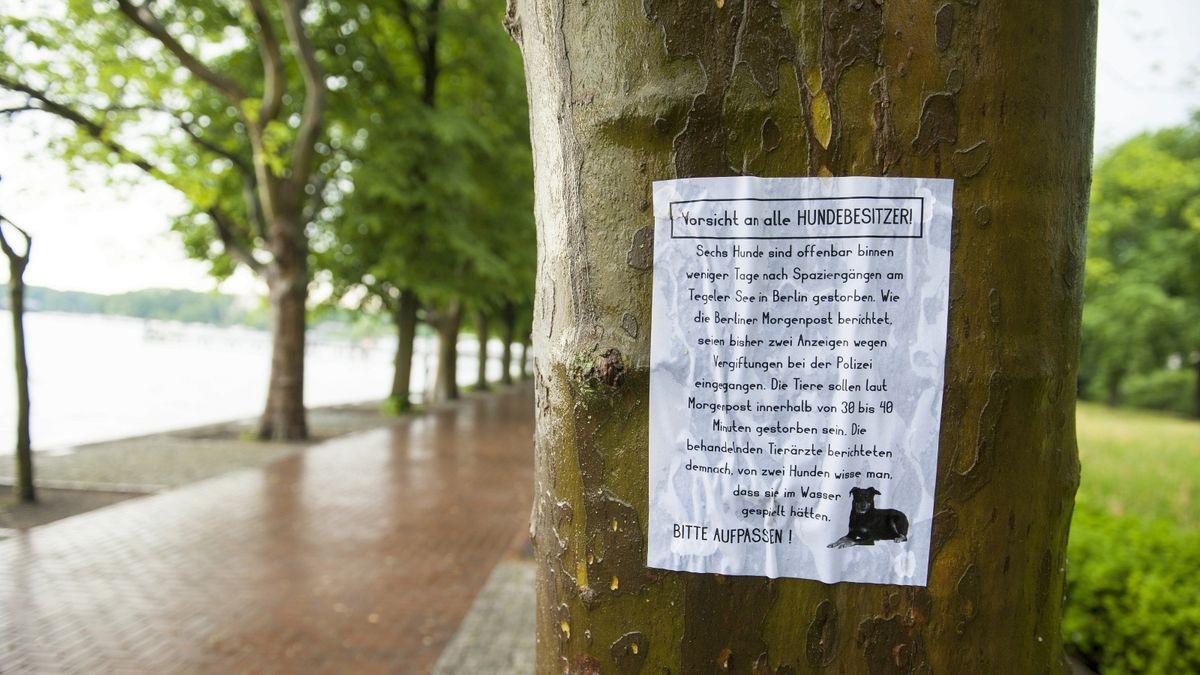 Vorsicht an alle HUNDEBESITZER!
Sechs Hunde sind offenbar binnen
weniger Tage nach Spaziergängen am
Tegeler See in Berlin gestorben. Wie
die Berliner Morgenpost berichtet,
seien bisher zwei Anzeigen wegen
Vergiftungen bei der Polizei
eingegangen. Die Tiere sollen laut
Morgenpost innerhalb von 30 bis 40
Minuten gestorben sein. Die
behandelnden Tierärzte berichteten
demnach, von zwei Hunden wisse man,
dass sie im Wasser
gespielt hätten.
BITTE AUFPASSEN !